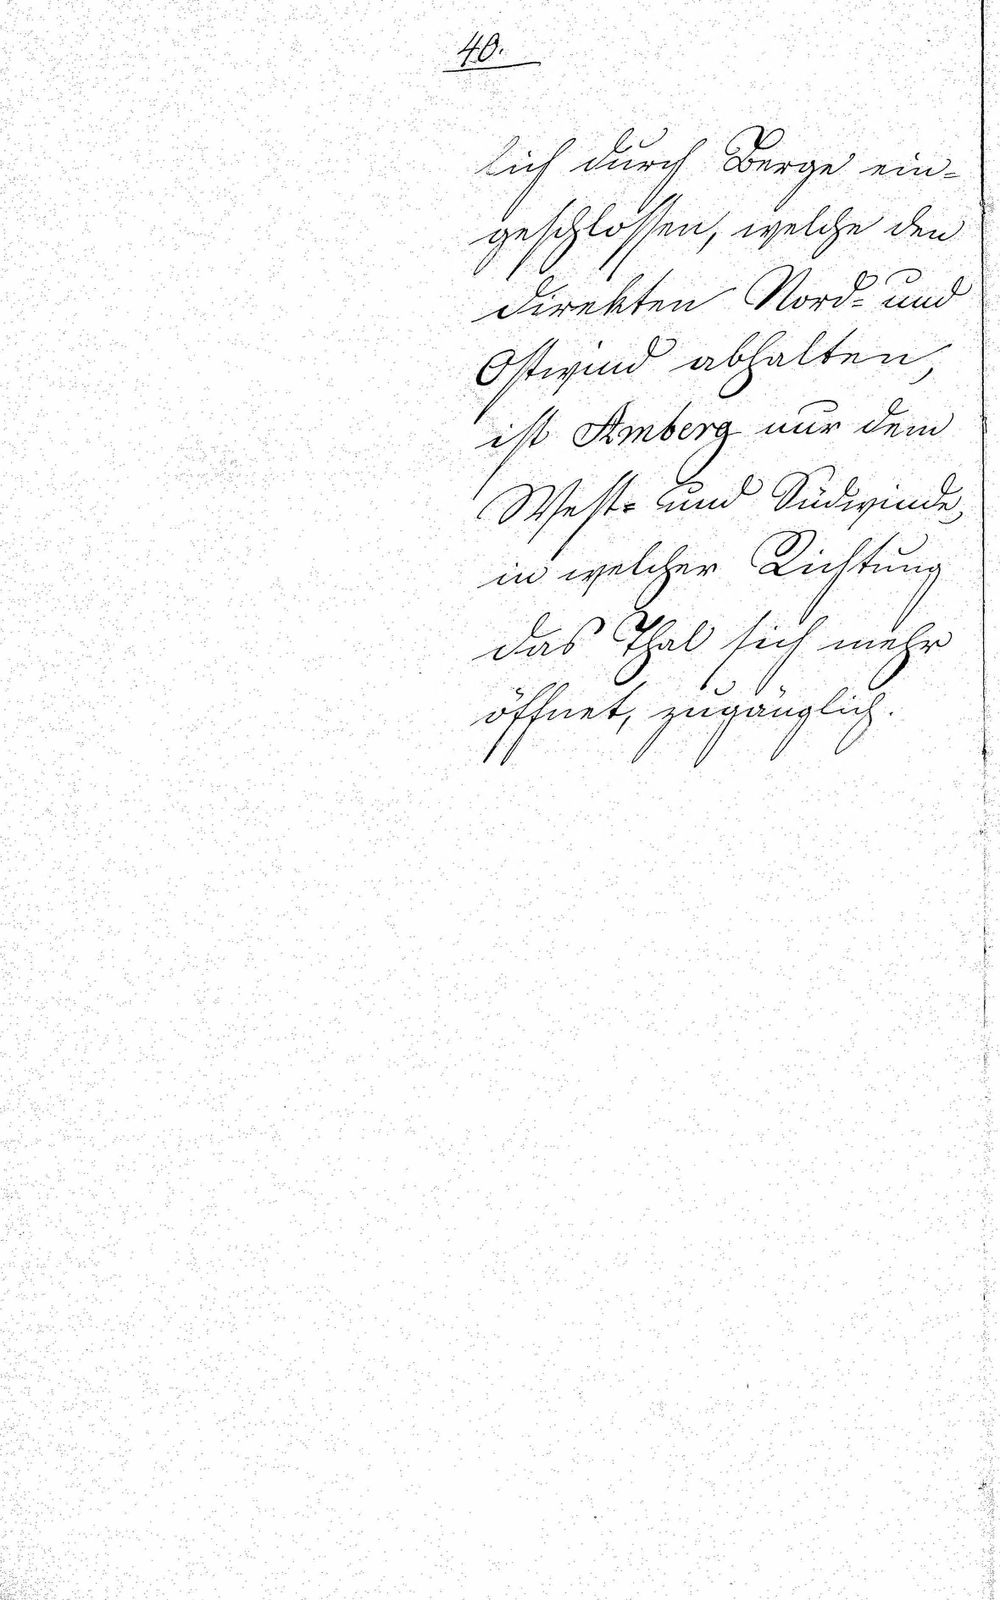 40.
lich durch Berge ein=
geschlossen, welche den
direkten Nord= und
Ostwind abhalten,
ist Amberg nur dem
West= und Südwinde,
in welcher Richtung
das Thal sich mehr
öffnet, zugänglich.